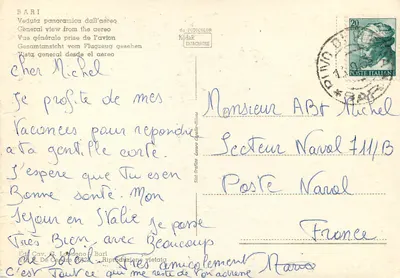 BARI
Veduta panoramica dall'aereo
General view from the aereo
Vue générale prise de l'avion
Gesamtansicht vom Flugzeug gesehen
Vista general desde el aereo
Cher Michel
Je profite de mes
Vacances pour repondre
a ta gentille carte.
J'espère que tu es en
Bonne santé. Mon
Sejour en Italie se passe
Très Bien avec Beaucoup
de Soleil. Très amicalement
C'est Tout ce qui me reste de ton adresse
Mario
20
POSTE ITALIANE
Kodak
Monsieur ABt Michel
Secteur Naval 711/B
Poste Naval
France
Riproduzione vietata